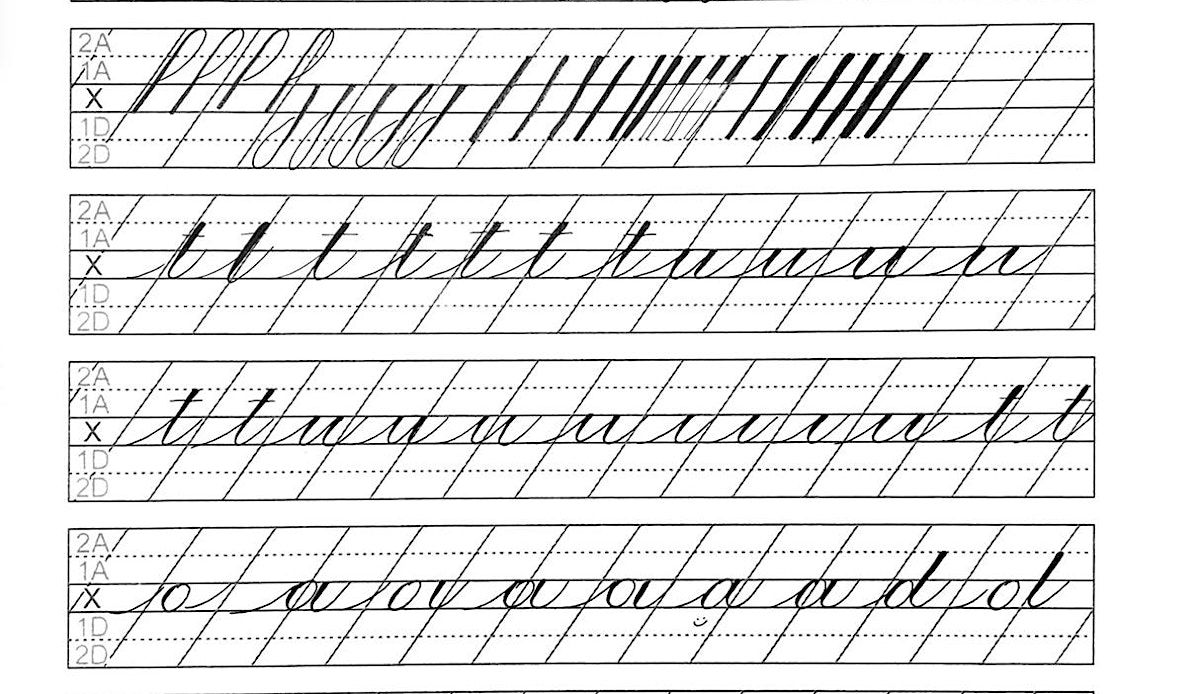 2A
1A
X
1D
2D
2A
1A
X t t t t t t t u u u u
1D
2D
2A
1A
X t t u u u u u u t t
1D
2D
2A
1A
X o a a a a a a d d
1D
2D